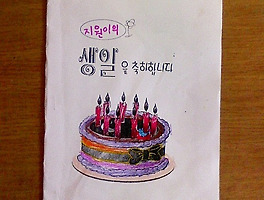 지원이의
생일을 축하합니다